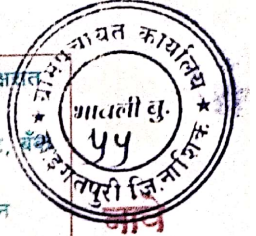 ग्रामपंचायत कार्यालय
गावली बु.
५५
★ इगतपुरी जि. नाशिक ★
नावे